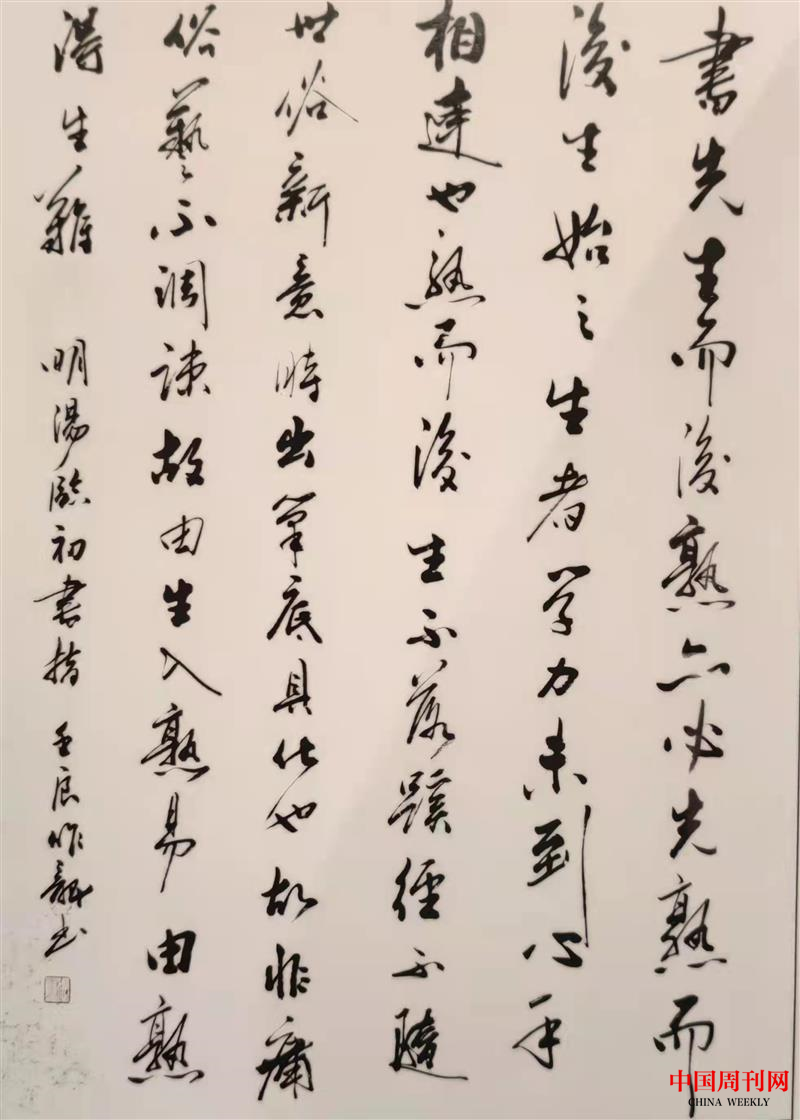 書先生而後熟亦必先熟而
後生始之生者學力未到心手
相違也熟而後生不落蹊徑不隨
世俗新意時出筆底具化也故非庸
俗藝不調疎故由生入熟易由熟
得生難 明湯臨初書指 壬辰作龍书
中国周刊网
CHINA WEEKLY